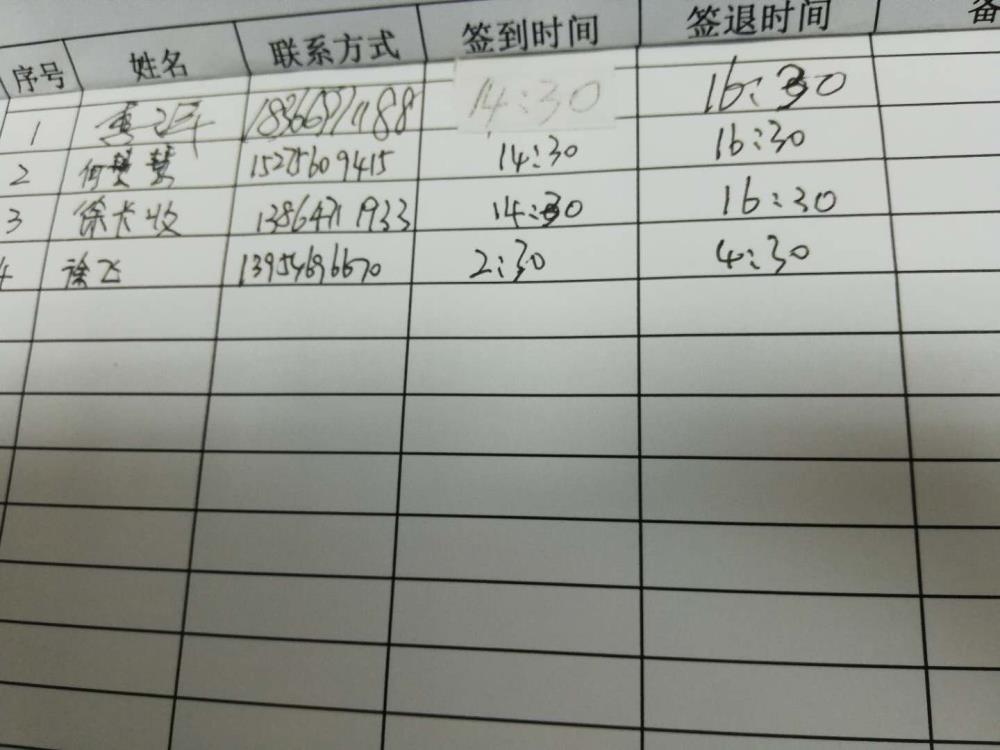 序号 姓名 联系方式 签到时间 签退时间 备
1 14:30 16:30
2 何 15275609415 14:30 16:30
3 徐 13864711933 14:30 16:30
4 徐飞 13954696670 2:30 4:30